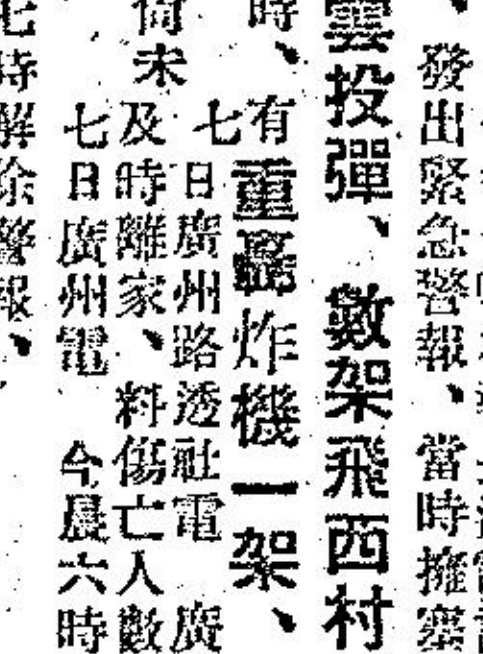 發出緊急警報、當時擁塞
雲投彈、數架飛西村
時、有重轟炸機一架、
七日廣州路透社電 廣
尚未及時離家、料傷亡人數
七日廣州電 今晨六時
七時解除警報、